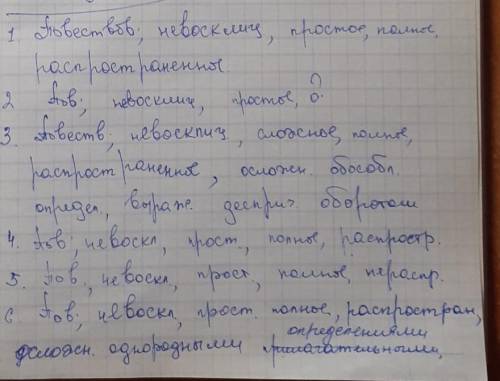 1. Повествов, невосклиц, простое, полное,
распространенное.
2 Пов, невосклиц, простые,
3. Повеств, невосклиц, сложное, полное,
распространенное, осложн. обособл.
определ, выраже. дееприч. оборотом
4. Пов, невоскл, прост, полное, распростр.
5. Пов, невоскл, прост, полное, нераспр.
6 Пов, невоскл, прост. полное, распростран,
определениями
осложн. однородными